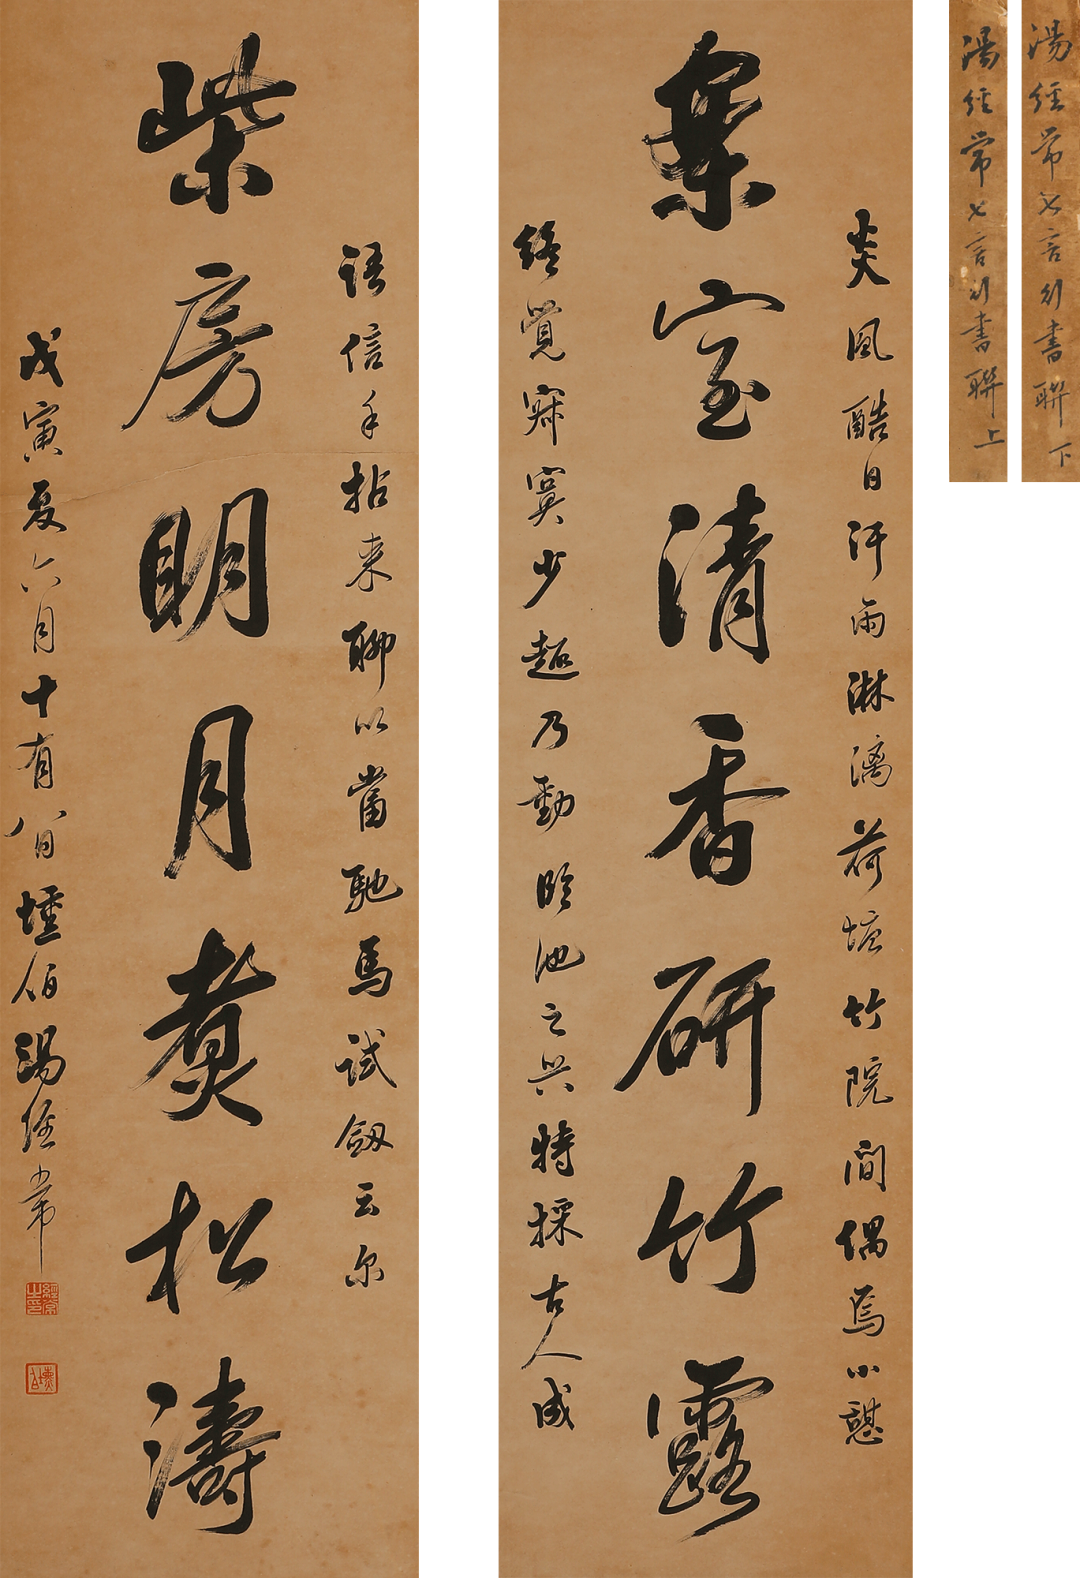 湯經常七言行書聯下
湯經常七言行書聯上
炎風酷日汗雨淋漓荷塘竹院間偶焉小憩
室清香研竹露
終覺寂寞少趣乃動臨池之興特採古人成
語信手拈來聊以當馳馬試劔云尔
柴房明月煑松濤
戊寅夏六月十有八日壇伯湯經常
經常之印